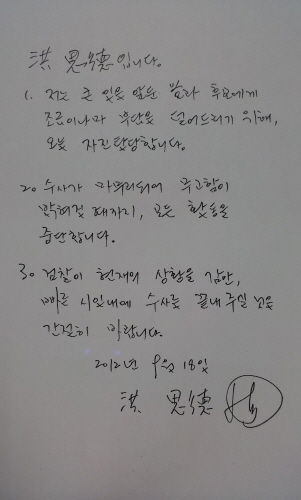 洪思德입니다.
1. 저는 큰 일을 앞둔 박근혜 후보에게
조금이나마 부담을 덜어드리기 위해,
오늘 자진탈당합니다.
2. 수사가 마무리되어 무고함이
밝혀질 때까지, 모든 활동을
중단합니다.
3. 검찰이 현재의 상황을 감안,
빠른 시일내에 수사를 끝내 주실 것을
간절히 바랍니다.
2012년 9월 18일
洪 思德